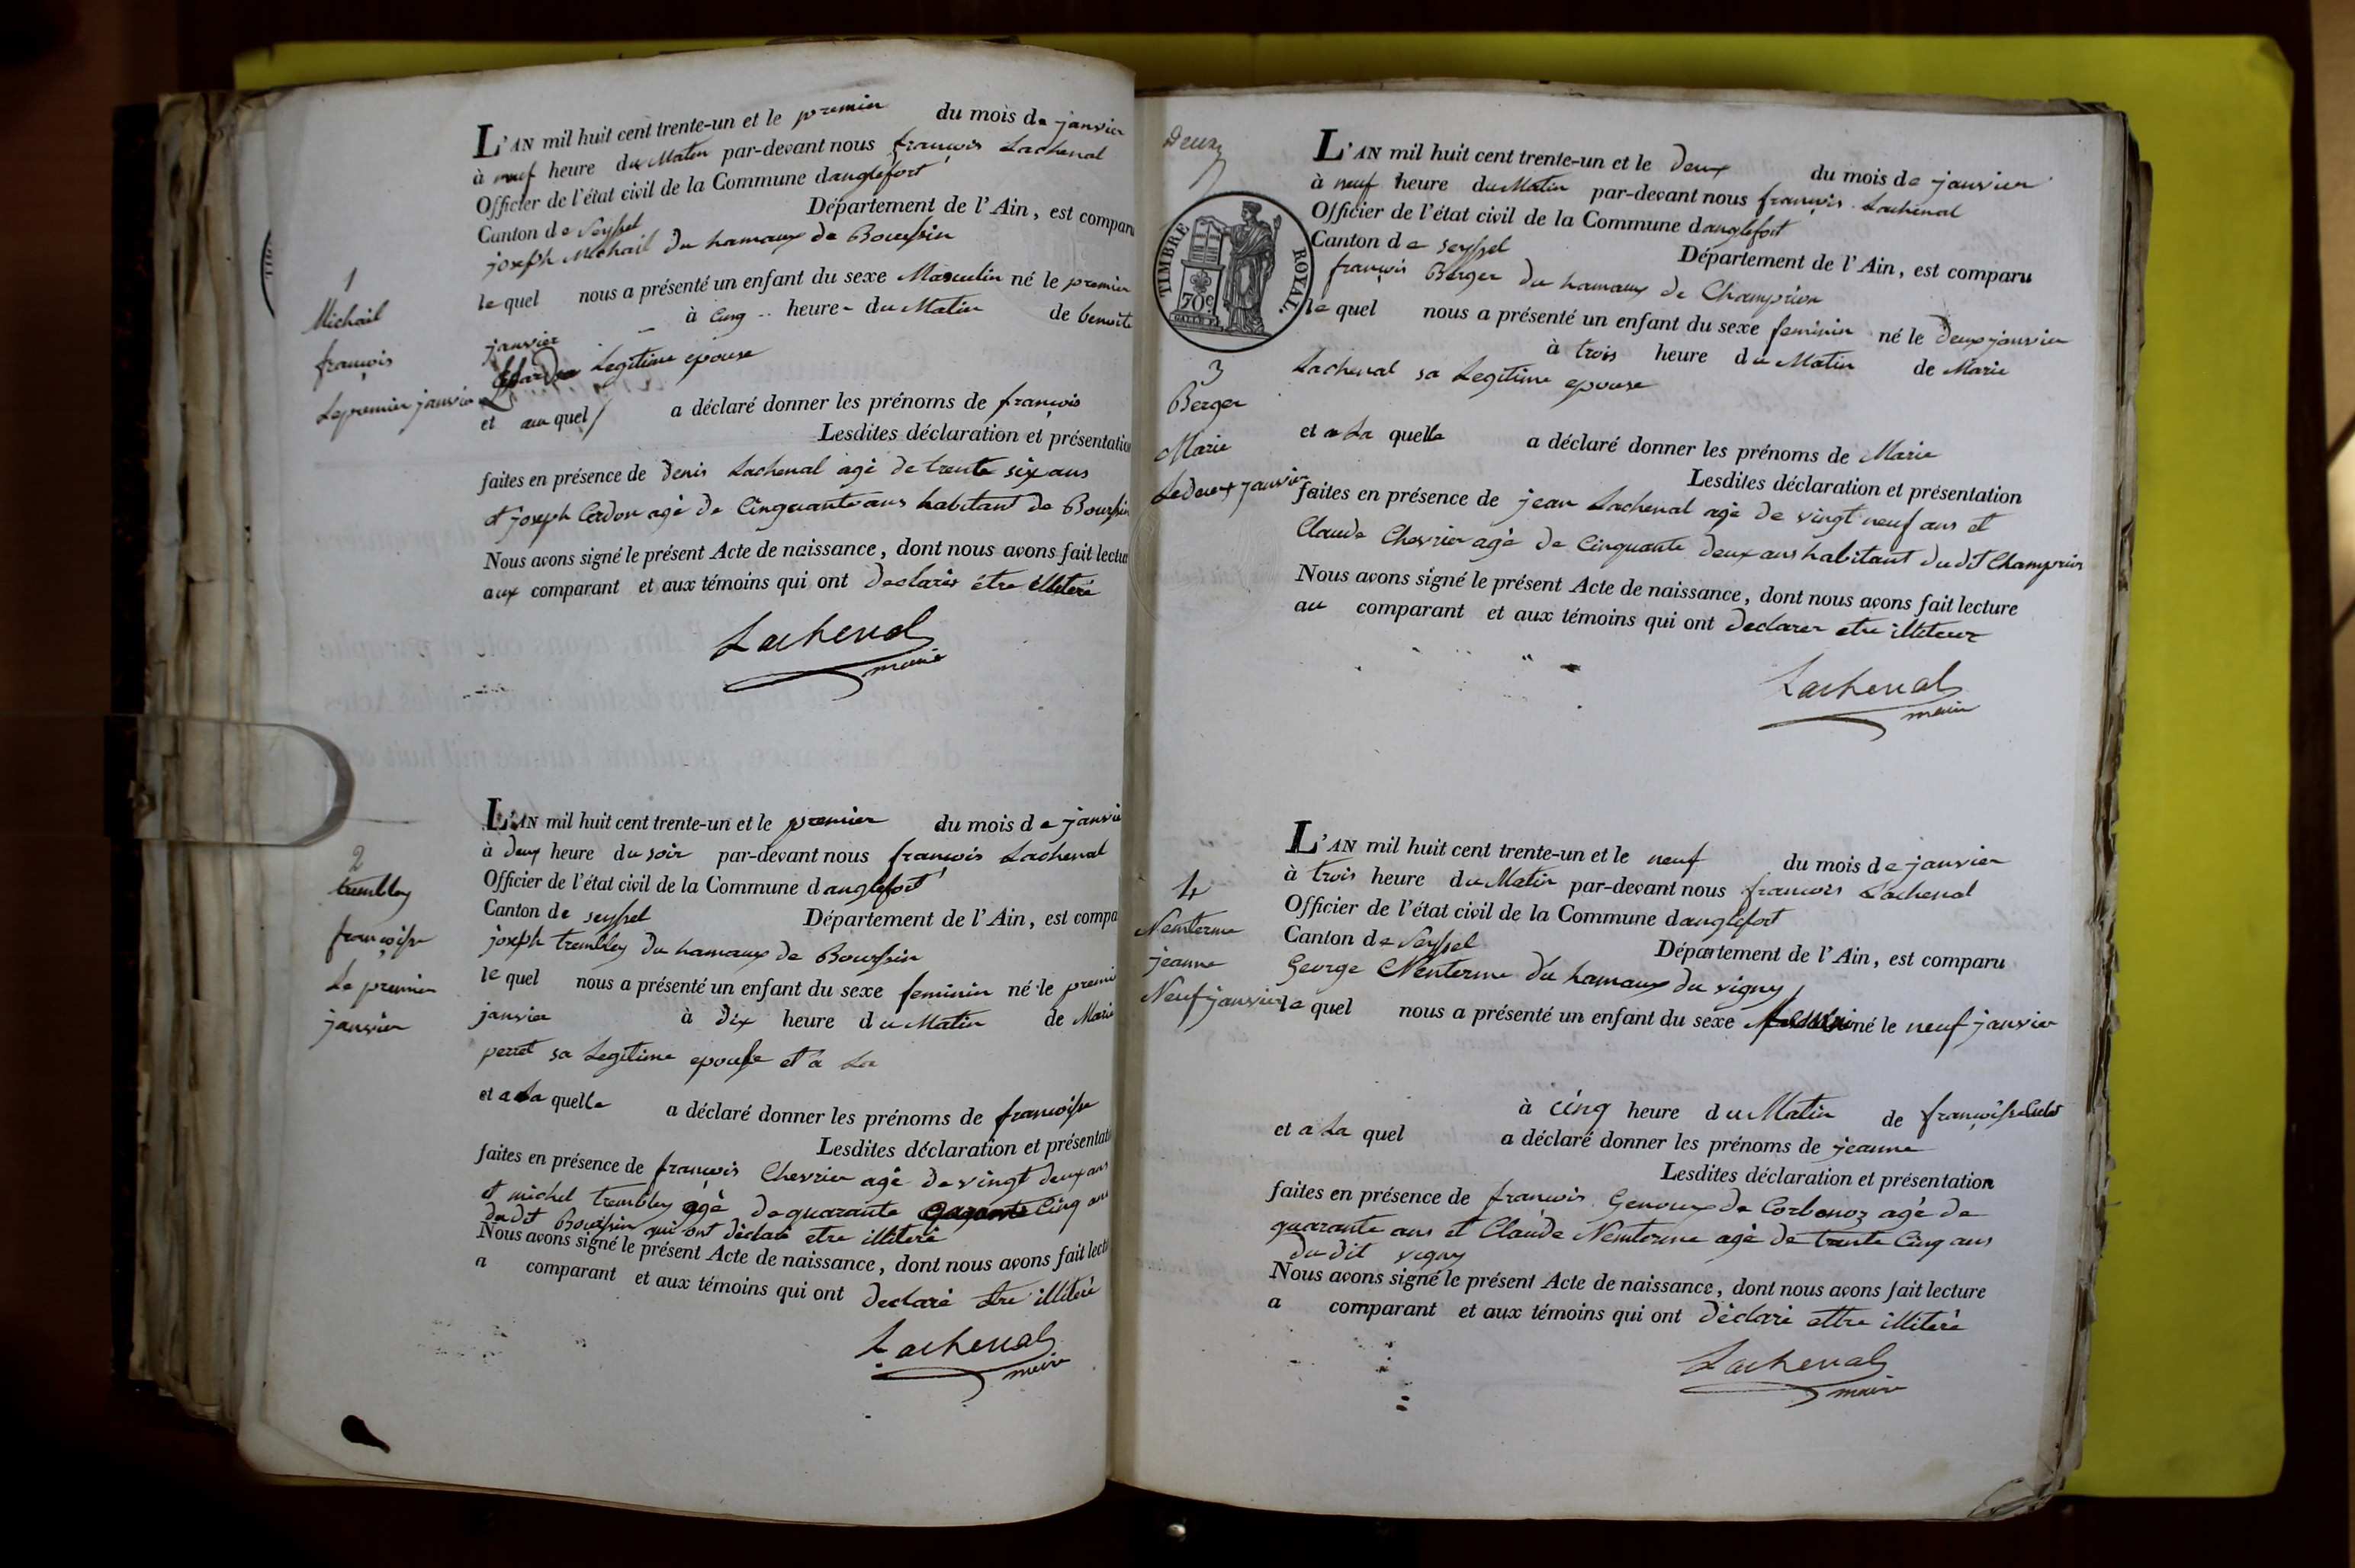 1
Michail
françois
Le premier janvier
L'AN mil huit cent trente-un et le premier du mois de janvier
à neuf heure du Matin par-devant nous françois Lachenal
Officier de l'état civil de la Commune danglefort
Canton de Seyssel Département de l'Ain, est compar
joseph Michail du hamaux de Boursin
le quel nous a présenté un enfant du sexe Masculin né le premier
janvier à Cinq heure du Matin de benoite
Legitime epouse
et au quel a déclaré donner les prénoms de françois
Lesdites déclaration et présentation
faites en présence de Denis Lachenal agé de trente six ans
et joseph Cerdon agé de Cinquante ans habitant de Boursin
Nous avons signé le présent Acte de naissance, dont nous avons fait lectu
aux comparant et aux témoins qui ont declarer étre illiteré
Lachenal
maire
2
trembley
françoise
Le premier
janvier
L'AN mil huit cent trente-un et le premier du mois de janvi
à deux heure du soir par-devant nous françois Lachenal
Officier de l'état civil de la Commune danglefort
Canton de seyssel Département de l'Ain, est compa
joseph trembley du hamaux de Boursin
le quel nous a présenté un enfant du sexe feminin né le premi
janvier à dix heure du Matin de Marie
perret sa Legitime epouse et a La
et a La quelle a déclaré donner les prénoms de françoise
Lesdites déclaration et présentati
faites en présence de françois Chevrier agé de vingt deux ans
et michel trembley agé de quarante Cinq ans
du dit Boursin qui ont déclaré etre illiteré
Nous avons signé le présent Acte de naissance, dont nous avons fait lect
a comparant et aux témoins qui ont declaré étre illiteré
Lachenal
maire
Deux
TIMBRE ROYAL
70c
3
Berger
Marie
Le deux janvier
L'AN mil huit cent trente-un et le deux du mois de janvier
à neuf heure du Matin par-devant nous françois Lachenal
Officier de l'état civil de la Commune danglefort
Canton de seyssel Département de l'Ain, est comparu
françois Berger du hamaux de Champrion
le quel nous a présenté un enfant du sexe feminin né le deux janvier
à trois heure du Matin de Marie
Lachenal sa Legitime epouse
et a La quelle a déclaré donner les prénoms de Marie
Lesdites déclaration et présentation
faites en présence de jean Lachenal agé de vingt neuf ans et
Claude Chevrier agé de Cinquante deux ans habitant du dit Champrion
Nous avons signé le présent Acte de naissance, dont nous avons fait lecture
au comparant et aux témoins qui ont declarer etre illiterer
Lachenal
maire
4
Nemterme
jeanne
Neuf janvier
L'AN mil huit cent trente-un et le neuf du mois de janvier
à trois heure du Matin par-devant nous françois Lachenal
Officier de l'état civil de la Commune danglefort
Canton de Seyssel Département de l'Ain, est comparu
George Nemterme du hamaux du vigny
le quel nous a présenté un enfant du sexe né le neuf janvier
à cinq heure du Matin de françoise
et a La quel a déclaré donner les prénoms de jeanne
Lesdites déclaration et présentation
faites en présence de françois Genoux de Corbonoz agé de
quarante ans et Claude Nemterme agé de trente Cinq ans
du dit vigny
Nous avons signé le présent Acte de naissance, dont nous avons fait lecture
a comparant et aux témoins qui ont déclaré ettre illiteré
Lachenal
maire